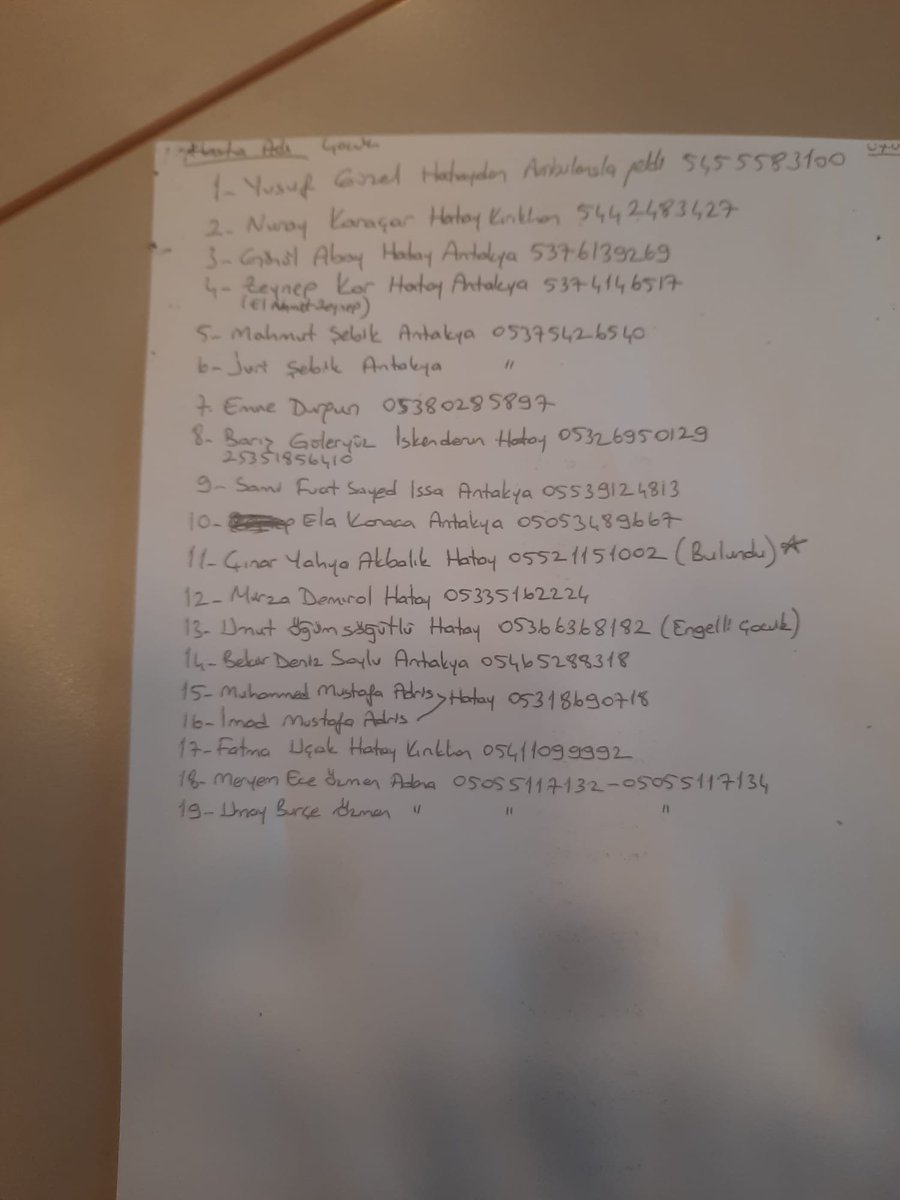 Hasta Adı Çocuk
1- Yusuf Güzel Hataydan Ambulansla geldi 5455583100
2- Nuray Karaçar Hatay Kırıkhan 5442483427
3- Gönül Abay Hatay Antakya 5376139269
4- Zeynep Kor Hatay Antakya 5374146517
(El Zeynep)
5- Mahmut Şebik Antakya 05375426540
6- Jurt Şebik Antakya "
7. Emine Durpun 05380285897
8- Barış Güleryüz İskenderun Hatay 05326950129
25351856410
9- Sami Fuat Sayed Issa Antakya 05539124813
10- Ela Karaca Antakya 05053489667
11- Çınar Yahya Akbalık Hatay 05521151002 (Bulundu) *
12- Mirza Demirol Hatay 05335162224
13- Umut Öğüm Söğütlü Hatay 05366368182 (Engelli Çocuk)
14- Bekir Deniz Soylu Antakya 05465288318
15- Muhammed Mustafa Adris Hatay 05318690718
16- İmad Mustafa Adris
17- Fatma Uçak Hatay Kırıkhan 05411099992
18- Meryem Ece Özmen Adana 05055117132-05055117134
19- Umay Burçe Özmen " " "